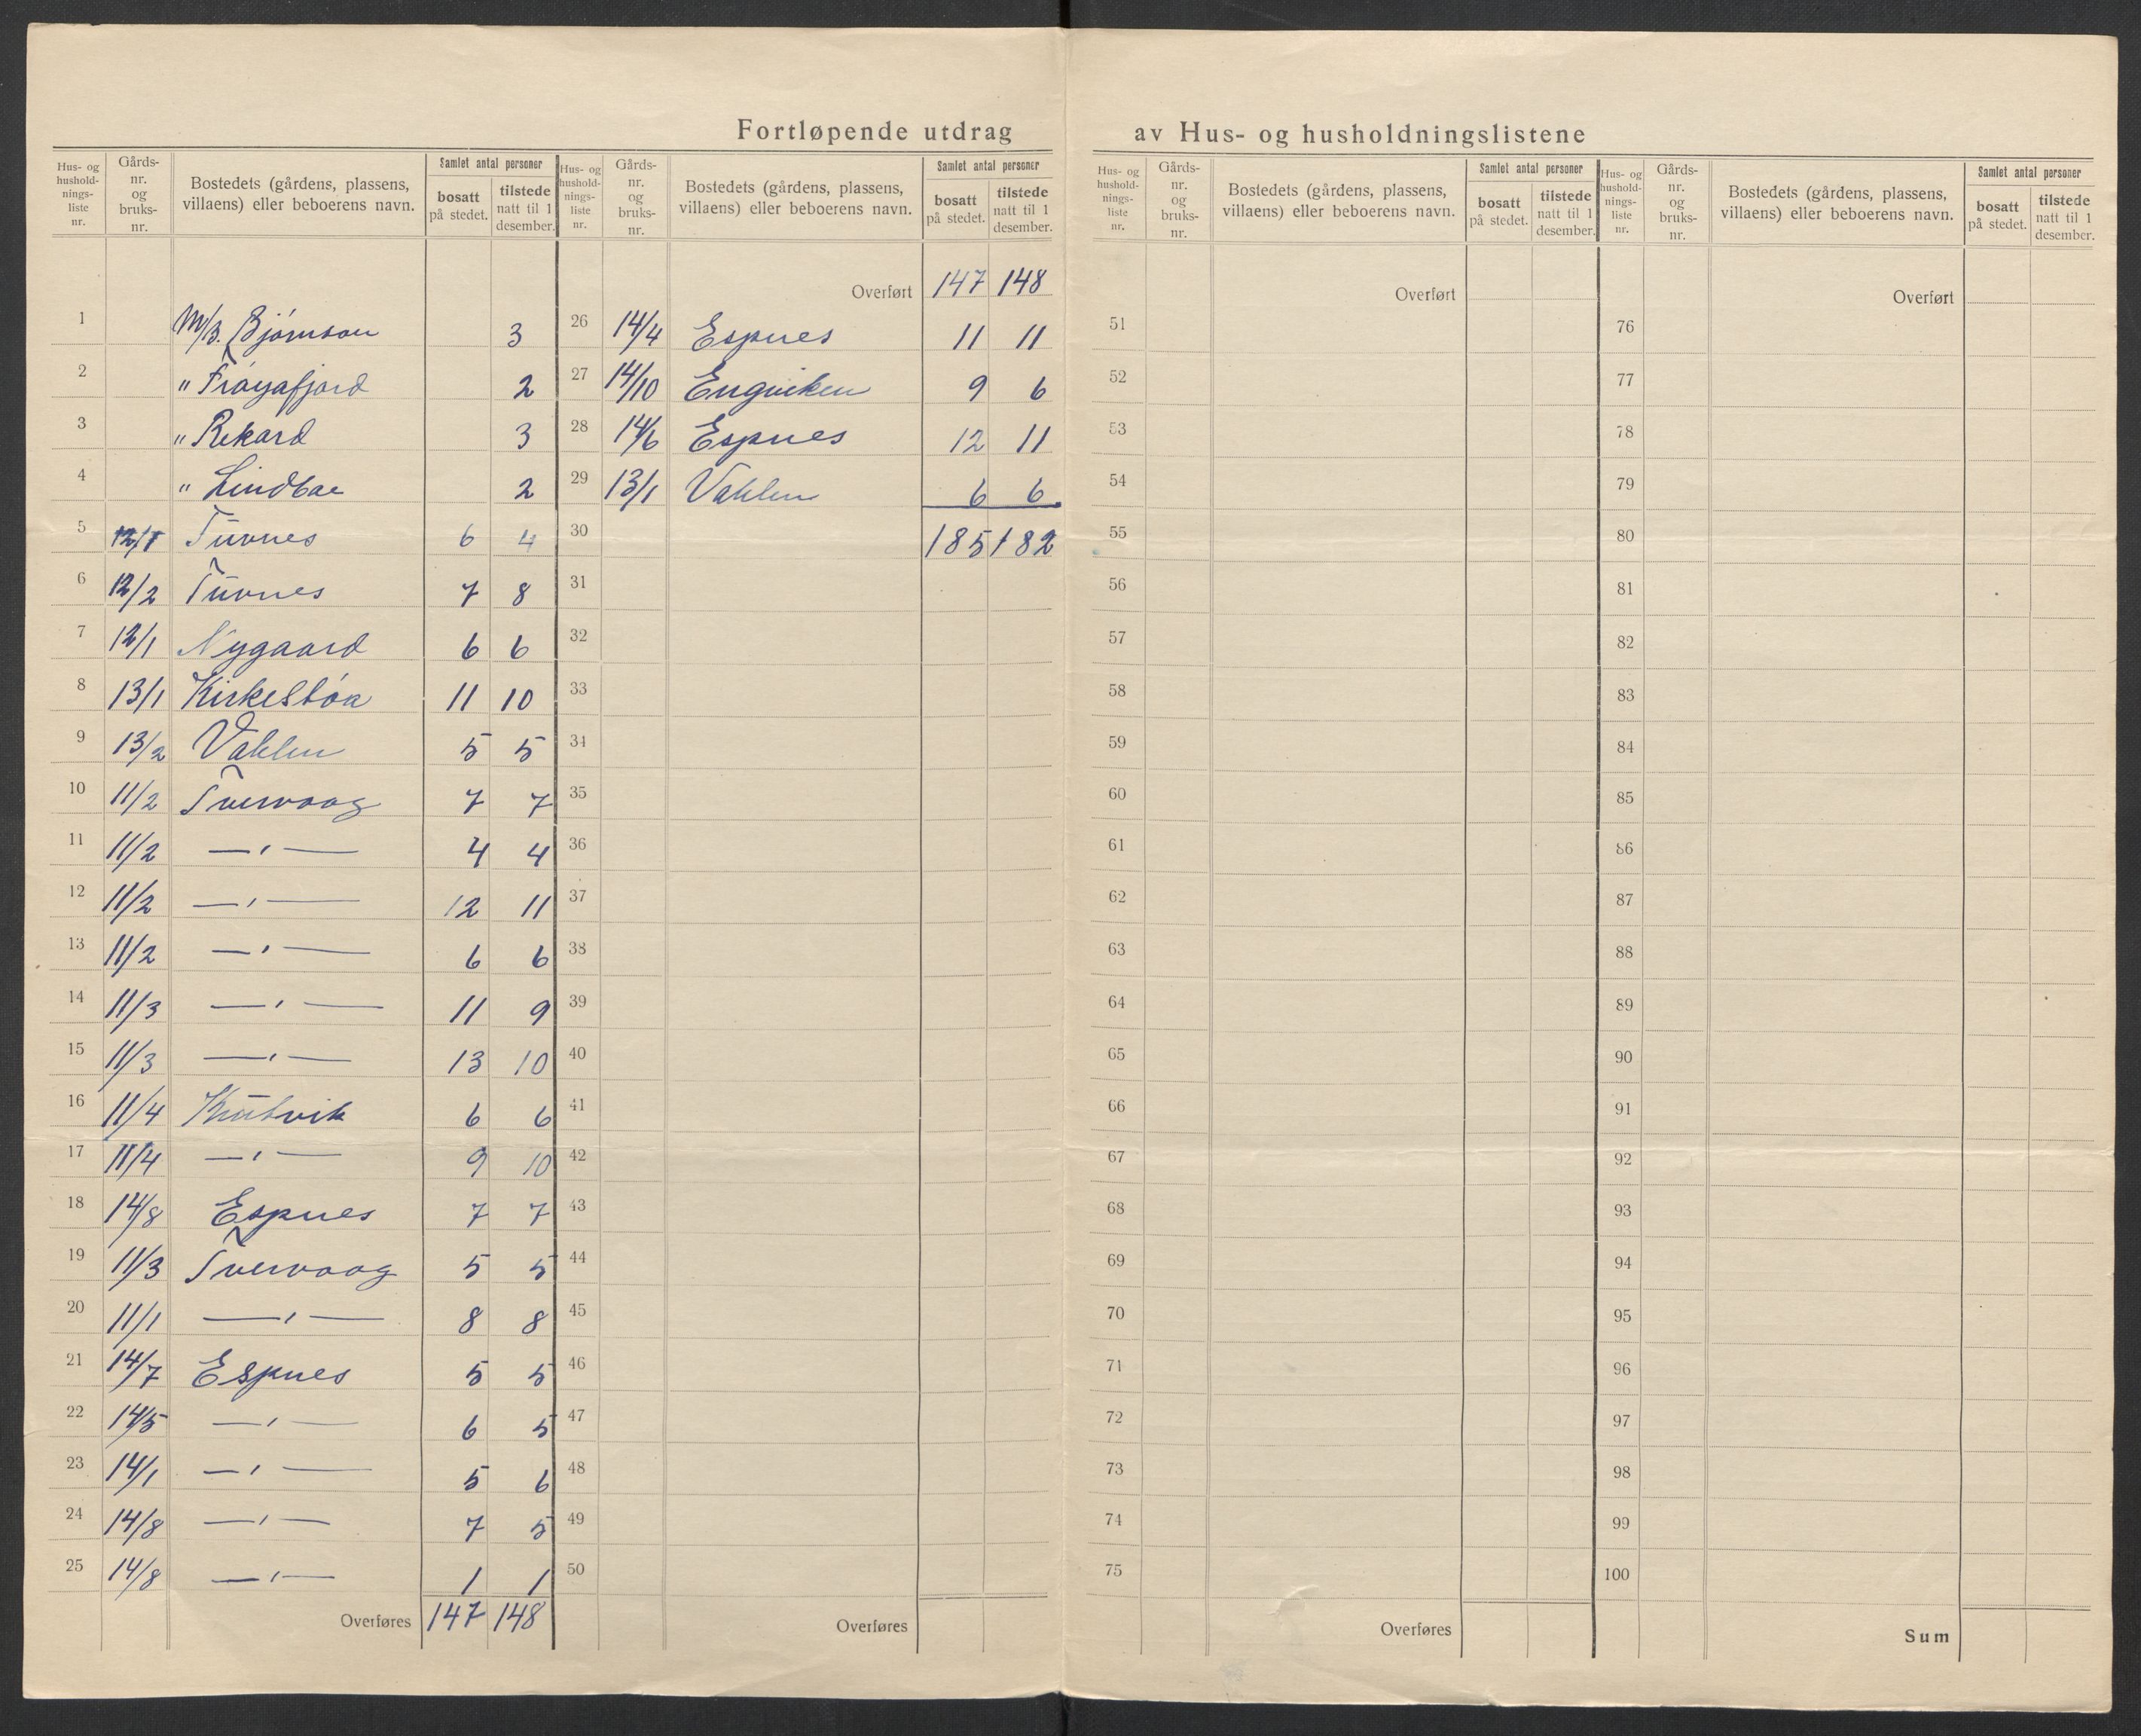 Fortløpende utdrag av Hus- og husholdningslistene
Hus- og husholdnings-liste nr. | Gårds-nr. og bruks-nr. | Bostedets (gårdens, plassens, villaens) eller beboerens navn. | Samlet antal personer: bosatt på stedet. | tilstede natt til 1 desember.
1 M/B. Bjørnson 3
2 " Frøyafjord 2
3 " Rekord 3
4 " Lindbae 2
5 12/1 Tuvnes 6 4
6 12/2 Tuvnes 7 8
7 12/1 Nygaard 6 6
8 13/1 Kirkestøa 11 10
9 13/2 Vahlen 5 5
10 11/2 Tvervaag 7 7
11 11/2 —"— 4 4
12 11/2 —"— 12 11
13 11/2 —"— 6 6
14 11/3 —"— 11 9
15 11/3 —"— 13 10
16 11/4 Kutvik 6 6
17 11/4 —"— 9 10
18 14/8 Espnes 7 7
19 11/3 Tvervaag 5 5
20 11/1 —"— 8 8
21 14/7 Espnes 5 5
22 14/5 —"— 6 5
23 14/1 —"— 5 6
24 14/8 —"— 7 5
25 14/8 —"— 1 1
Overføres 147 148
Hus- og husholdnings-liste nr. | Gårds-nr. og bruks-nr. | Bostedets (gårdens, plassens, villaens) eller beboerens navn. | Samlet antal personer: bosatt på stedet. | tilstede natt til 1 desember.
Overført 147 148
26 14/4 Espnes 11 11
27 14/10 Engviken 9 6
28 14/6 Espnes 12 11
29 13/1 Vahlen 6 6
30 185 182
31
32
33
34
35
36
37
38
39
40
41
42
43
44
45
46
47
48
49
50
Overføres
Hus- og husholdnings-liste nr. | Gårds-nr. og bruks-nr. | Bostedets (gårdens, plassens, villaens) eller beboerens navn. | Samlet antal personer: bosatt på stedet. | tilstede natt til 1 desember.
Overført
51
52
53
54
55
56
57
58
59
60
61
62
63
64
65
66
67
68
69
70
71
72
73
74
75
Overføres
Hus- og husholdnings-liste nr. | Gårds-nr. og bruks-nr. | Bostedets (gårdens, plassens, villaens) eller beboerens navn. | Samlet antal personer: bosatt på stedet. | tilstede natt til 1 desember.
Overført
76
77
78
79
80
81
82
83
84
85
86
87
88
89
90
91
92
93
94
95
96
97
98
99
100
Sum